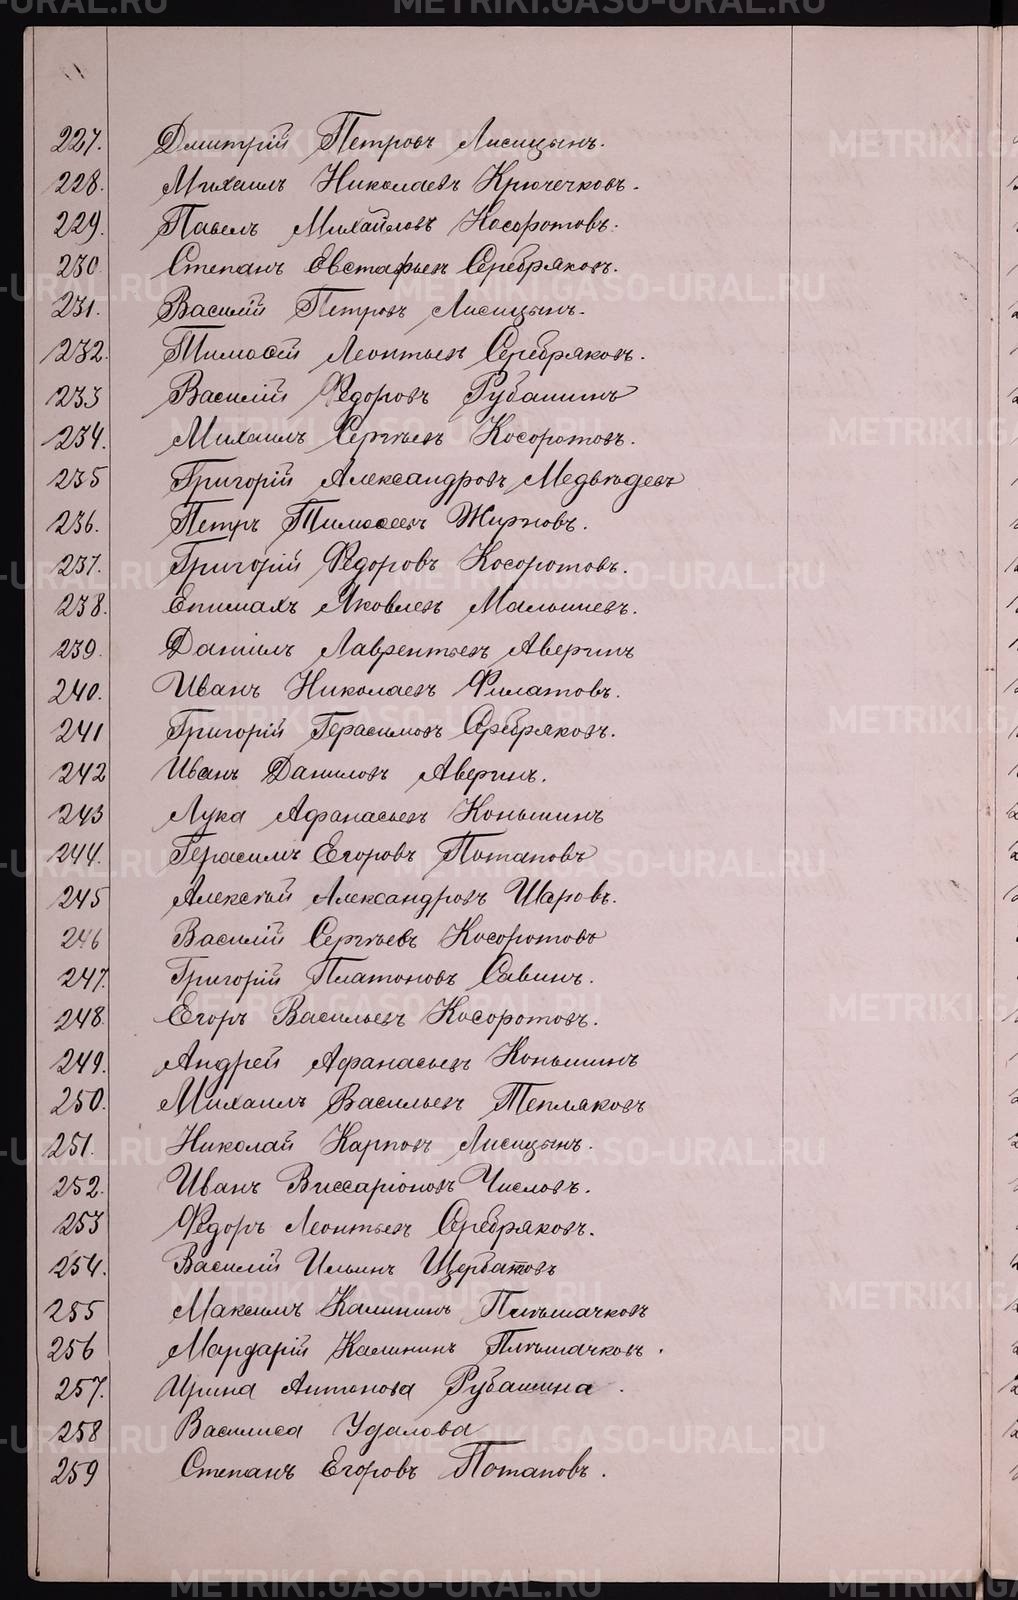 227. Дмитрій Петровъ Лисицынъ.
228. Михаилъ Николаевъ Крючечковъ.
229. Павелъ Михайловъ Косоротовъ.
230 Степанъ Евстафьевъ Серебряковъ.
231. Василій Петровъ Лисицынъ.
232. Тимофей Леонтьевъ Серебряковъ.
233 Василій Федоровъ Рубашинъ
234. Михаилъ Сергѣевъ Косоротовъ.
235 Григорій Александровъ Медвѣдевъ
236. Петръ Тимофеевъ Жирновъ.
237. Григорій Федоровъ Косоротовъ.
238. Епимахъ Яковлевъ Малышевъ.
239. Даніилъ Лаврентьевъ Аверинъ
240. Иванъ Николаевъ Филатовъ.
241 Григорій Герасимовъ Серебряковъ.
242 Иванъ Даниловъ Аверинъ.
243 Лука Афанасьевъ Коньшинъ
244. Герасимъ Егоровъ Потаповъ
245 Алексѣй Александровъ Шаровъ.
246 Василій Сергѣевъ Косоротовъ
247. Григорій Платоновъ Савинъ.
248. Егоръ Васильевъ Косоротовъ.
249. Андрей Афанасьевъ Коньшинъ
250. Михаилъ Васильевъ Тепляковъ
251. Николай Карповъ Лисицынъ.
252. Иванъ Виссаріоновъ Числовъ.
253 Федоръ Леонтьевъ Серебряковъ.
254. Василій Ильинъ Щербатовъ
255 Максимъ Калининъ Плѣшачковъ
256 Мардарій Калининъ Плѣшачковъ.
257. Ирина Антонова Рубашина.
258 Василиса Удалова
259 Степанъ Егоровъ Потаповъ.
METRIKI.GASO-URAL.RU